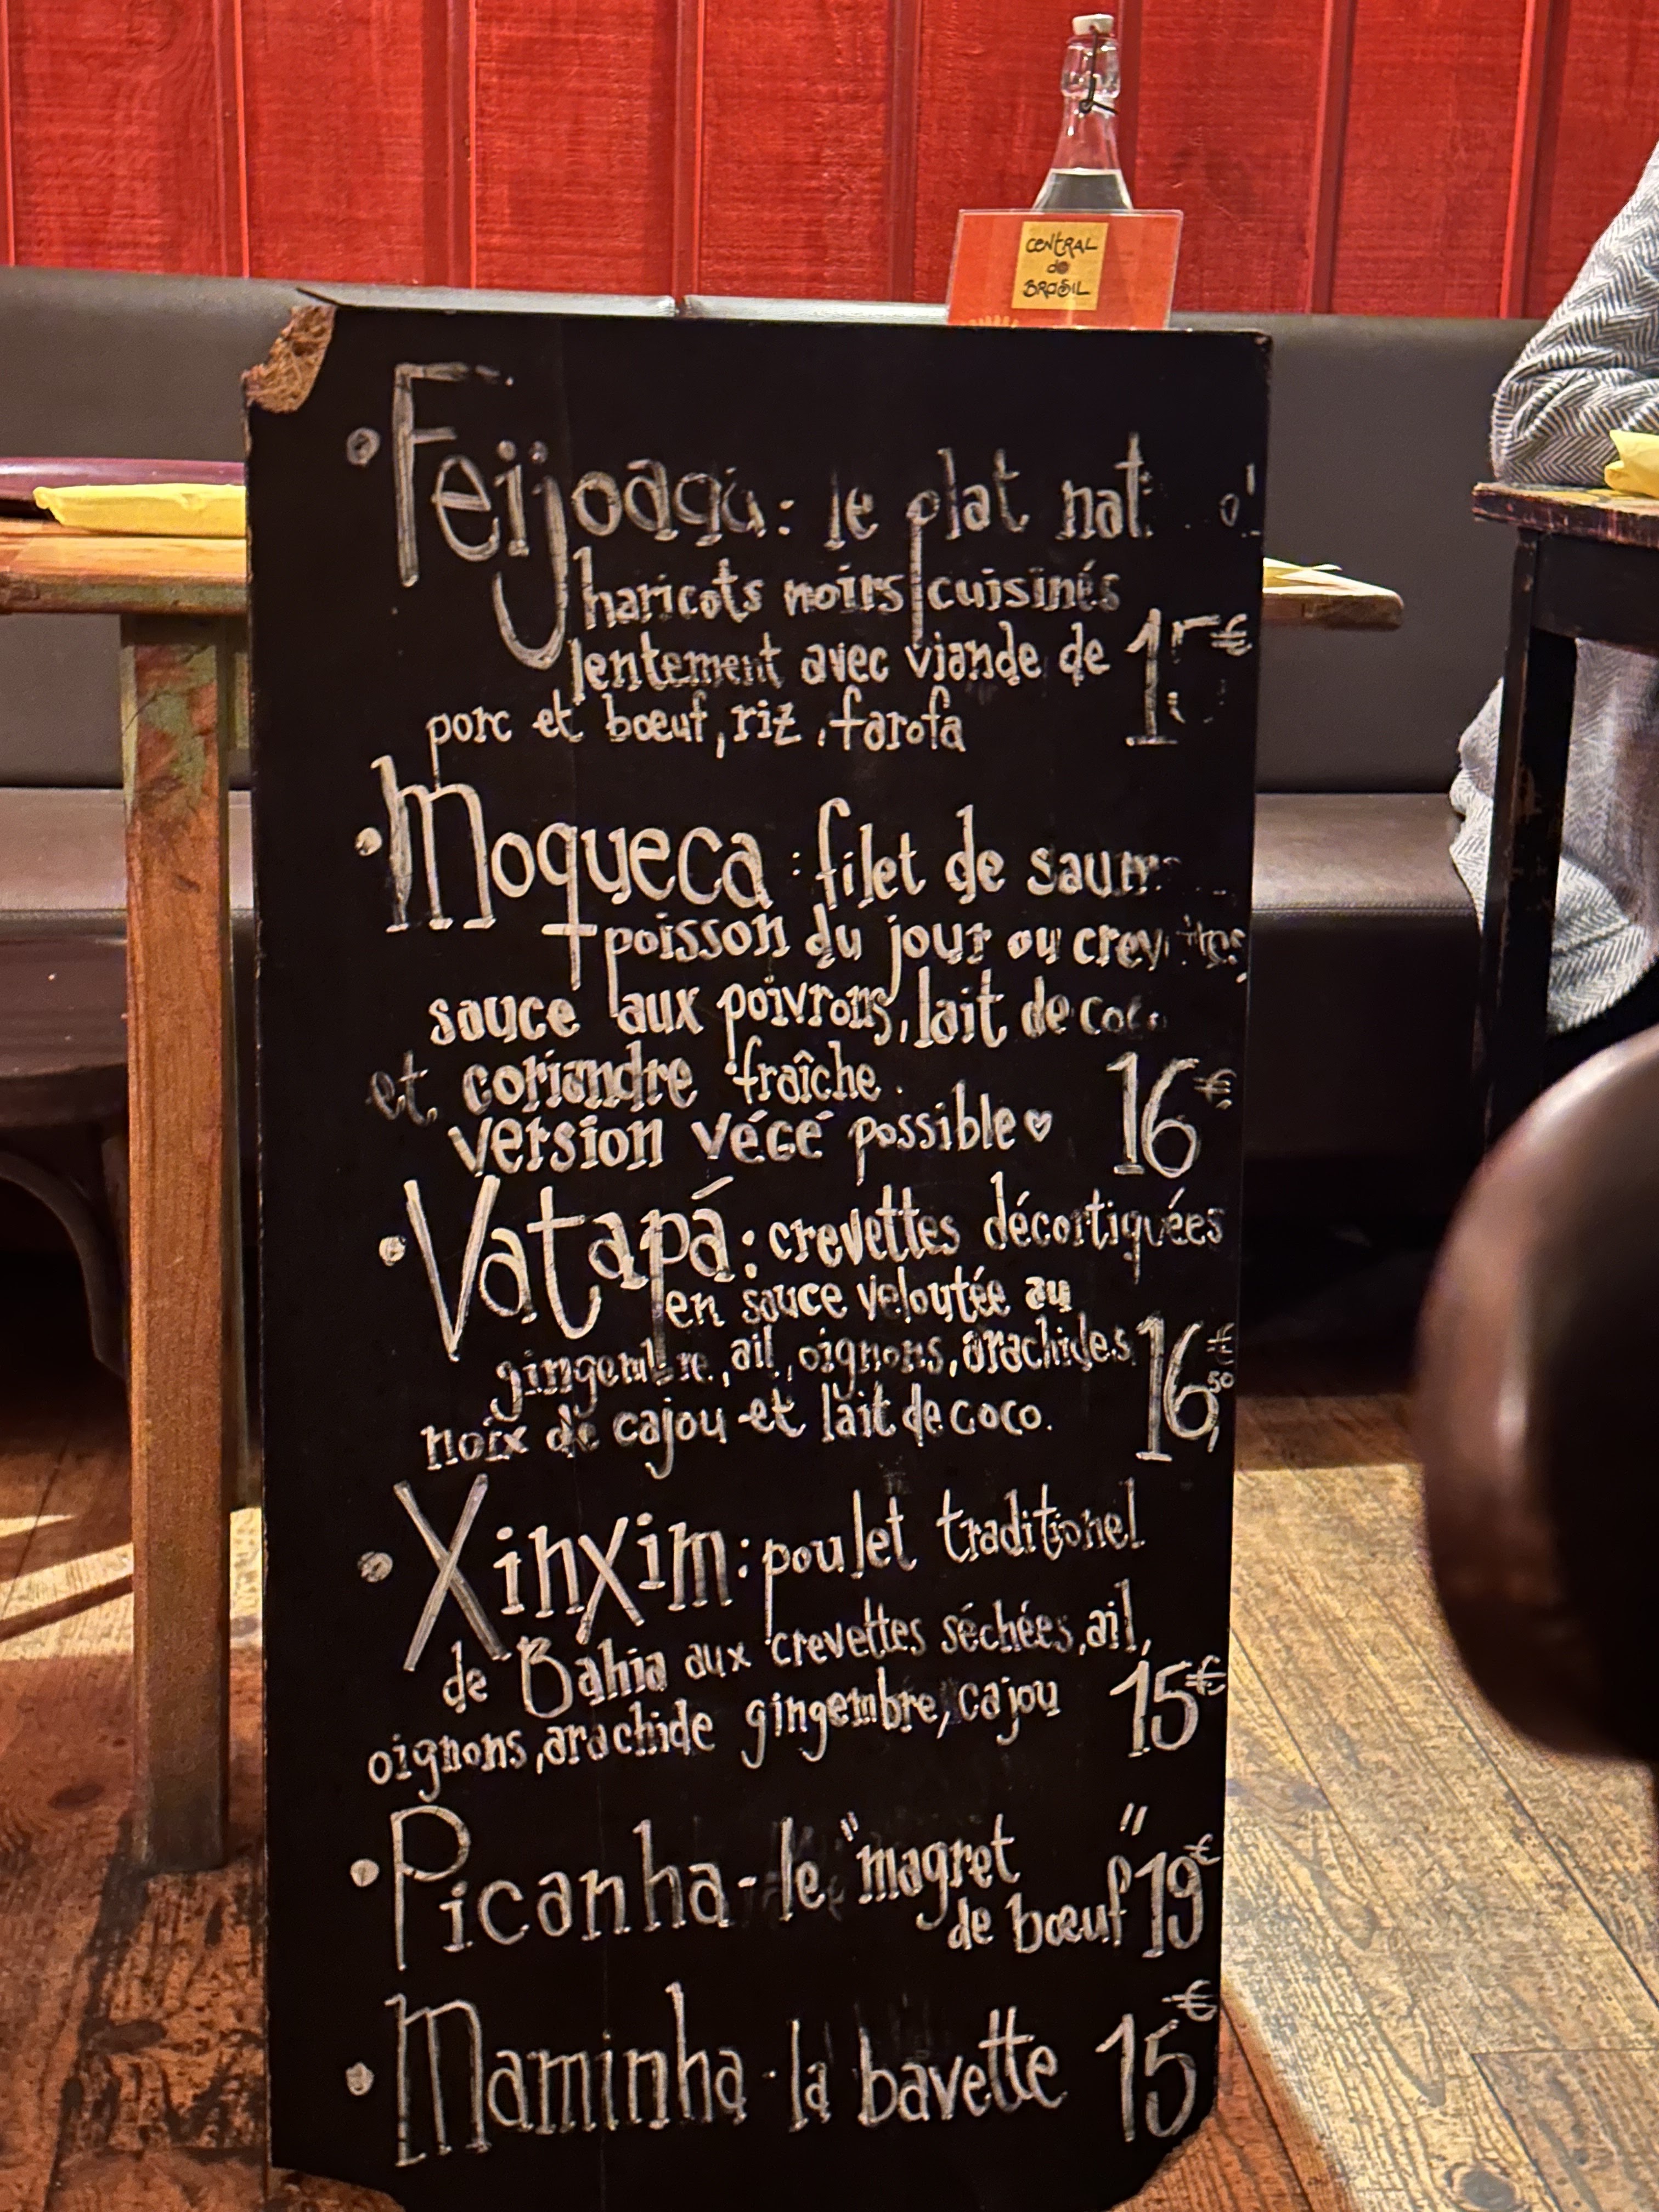 CENTRAL
do
BRASIL
• Feijoada: le plat
haricots noirs cuisinés
lentement avec viande de
porc et bœuf, riz, farofa
• Moqueca: filet de
+ poisson du jour ou
sauce aux poivrons, lait de coco
et coriandre fraîche.
version végé possible ♡ 16€
• Vatapá: crevettes décortiquées
en sauce veloutée au
gingembre, ail, oignons, arachides
noix de cajou et lait de coco. 16,50€
• Xinxim: poulet traditionel
de Bahia aux crevettes séchées, ail,
oignons, arachide gingembre, cajou 15€
• Picanha - le "magret
de bœuf" 19€
• Maminha - la bavette 15€